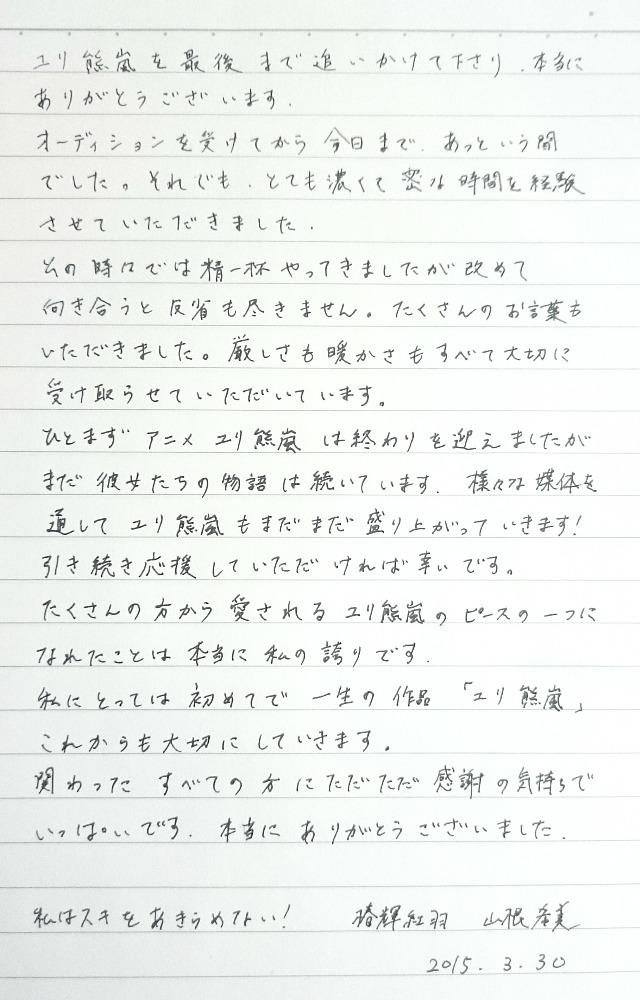 ユリ熊嵐を最後まで追いかけて下さり、本当に
ありがとうございます.
オーディションを受けてから今日まで、あっという間
でした。それでも、とても濃くて密な時間を経験
させていただきました.
その時々では精一杯やってきましたが改めて
向き合うと反省も尽きません。たくさんのお言葉も
いただきました。厳しさも暖かさもすべて大切に
受け取らせていただいています。
ひとまずアニメ ユリ熊嵐 は終わりを迎えましたが
まだ彼女たちの物語は続いています. 様々な媒体を
通して ユリ熊嵐もまだまだ盛り上がっていきます!
引き続き応援していただければ幸いです。
たくさんの方から愛されるユリ熊嵐のピースの一つに
なれたことは本当に私の誇りです.
私にとっては初めてで一生の作品「ユリ熊嵐」
これからも大切にしていきます。
関わったすべての方にただただ感謝の気持ちで
いっぱいです. 本当にありがとうございました.
私はスキをあきらめない! 椿輝紅羽 山根希美
2015.3.30